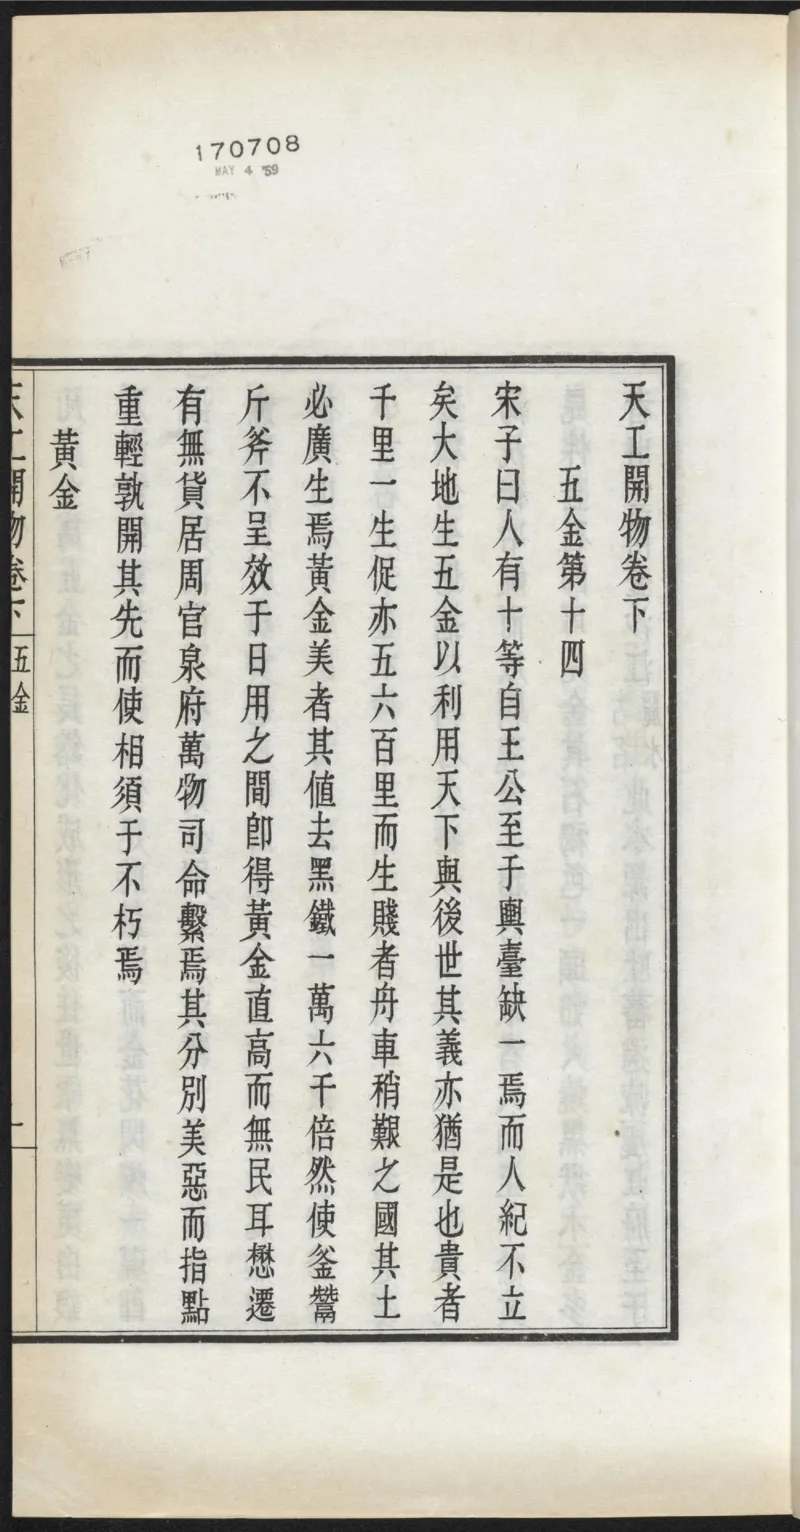 170708
MAY 4 '59
天工開物卷下
五金第十四
宋子曰人有十等自王公至于輿臺缺一焉而人紀不立
矣大地生五金以利用天下與後世其義亦猶是也貴者
千里一生促亦五六百里而生賤者舟車稍艱之國其土
必廣生焉黃金美者其値去黑鐵一萬六千倍然使釜鬵
斤斧不呈效于日用之間卽得黃金直高而無民耳懋遷
有無貨居周官泉府萬物司命繫焉其分別美惡而指點
重輕孰開其先而使相須于不朽焉
黃金
天工開物卷下 五金 一